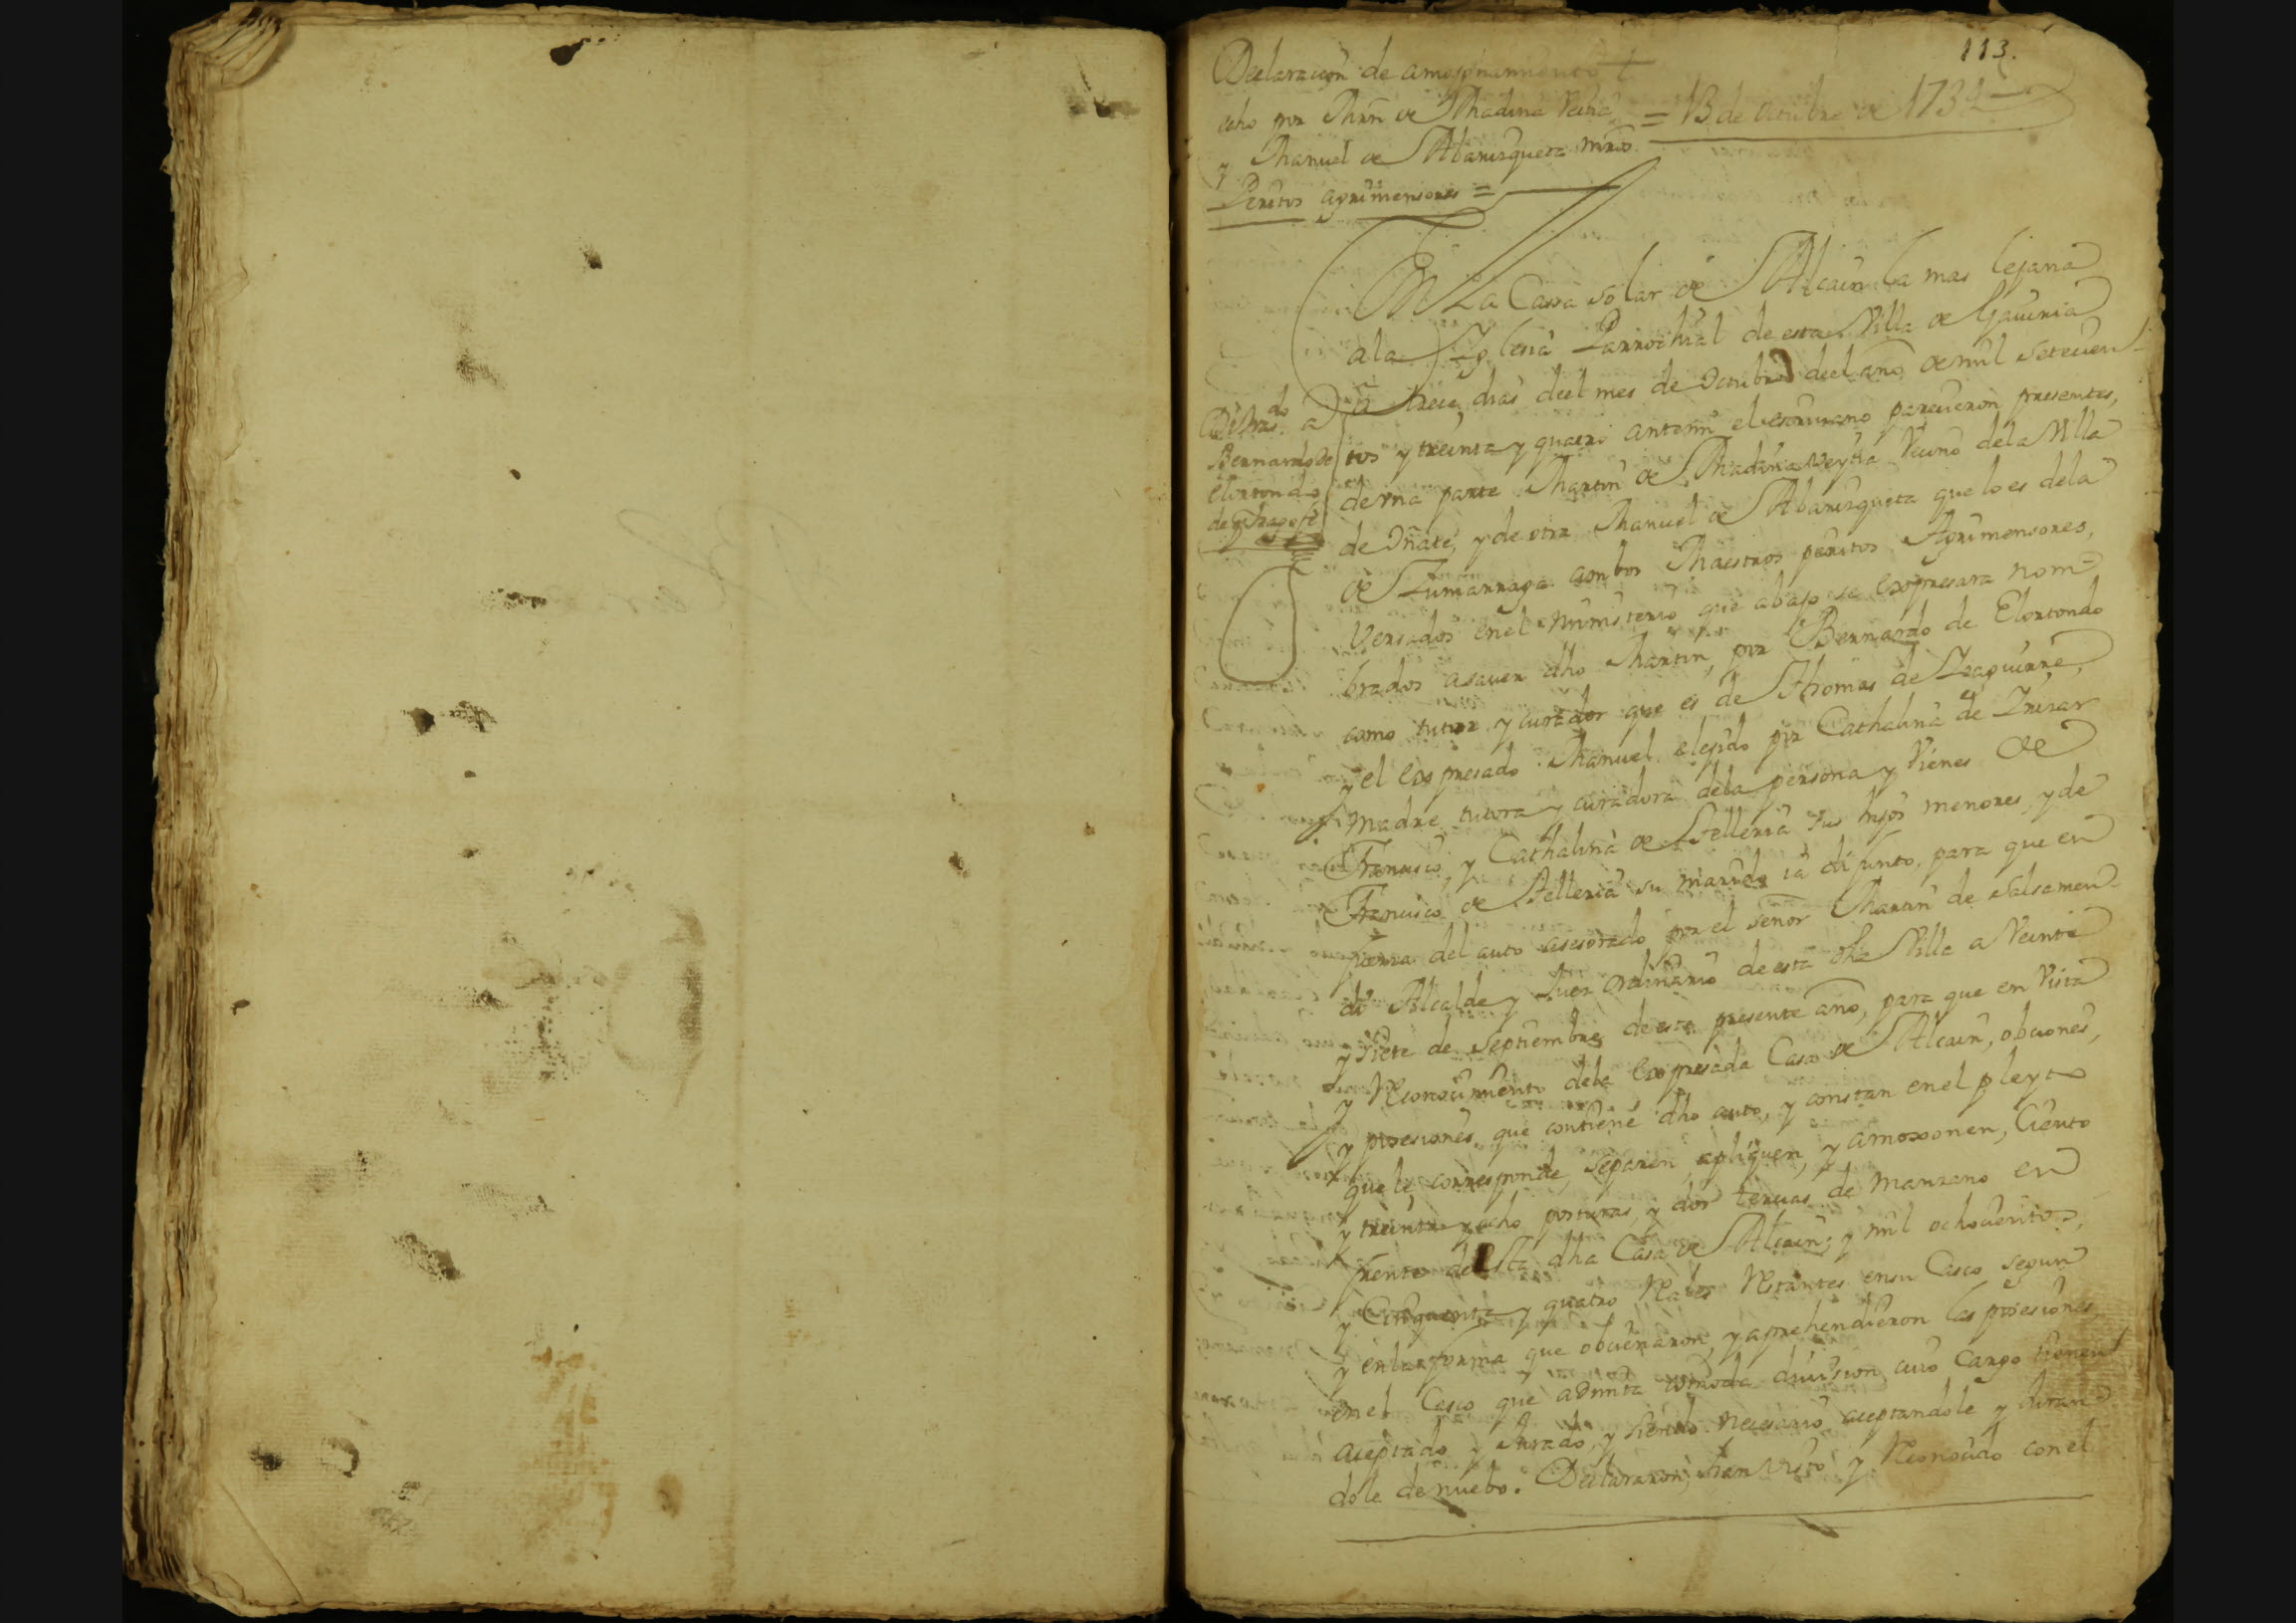 113.
Declaraçion de amojonamiento
echo por Mrn de Madina Veitia = 13 de Octubre de 1734
y Manuel de Abarizqueta mros
Peritos agrimensores =
En La Cassa solar de Alcain la mas lejana
a la Yglesia Parrochial de esta Villa de Gaviria
a treçe dias del mes de Octubre del año de mil seteçien
tos y treinta y quatro ante mi el escrivano pareçieron presentes,
de vna parte Martin de Madina Veytia Veçino de la Villa
de Oñate, y de otra Manuel de Abarizqueta que lo es de la
de Zumarraga ambos Maestros peritos Agrimensores,
Versados en el ministerio que abajo se expresara nom-
brados a saver dho Martin, por Bernardo de Elortondo
como tutor y curador que es de Thomas de Yzaguirre,
y el expresado Manuel elejido por Cathalina de
Madre tutora y curadora de la persona y Vienes de
Françisco, y Cathalina de Telleria sus hijos menores, y de
Françisco de Telleria su marido ia difunto, para que en
fuerza del auto asesorado por el señor Martin de Salsamen-
di Alcalde y Juez Ordinario de esta dha Villa a Veinte
y siete de Septiembre de este presente año, para que en Vista
y Reconoçimiento de la expresada Casa de Alcain, obçiones,
y posesiones, que contiene dho auto, y constan en el pleyto
que le corresponde, separen, apliquen, y amoxonen, Çiento
y treinta y ocho posturas, y dos terçias de manzano en
frente de esta dha Casa de Alcain; y mil ochoçientos,
y Çinquenta y quatro Reales Restantes en su Casco segun
y en la forma que obçionaron, y aprehendieron las posesiones,
en el Casco que admita comoda division, cuio cargo tienen
açeptado y Jurado, y siendo neçesario açeptandole y Juran-
dole de nuebo. Declararon, han visto y Reconoçido con el
do
a
Bernardo de
Elortondo
de que doy fe